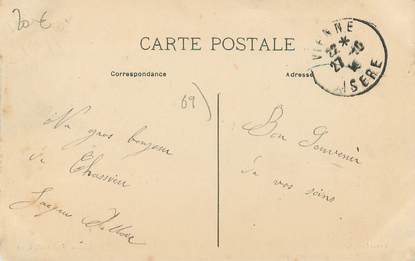 20 €
CARTE POSTALE
Correspondance
Adresse
VIENNE
22 *
27 -10
ISERE
69)
Un gros bonjour
de Chassieu
Bon Souvenir
de vos